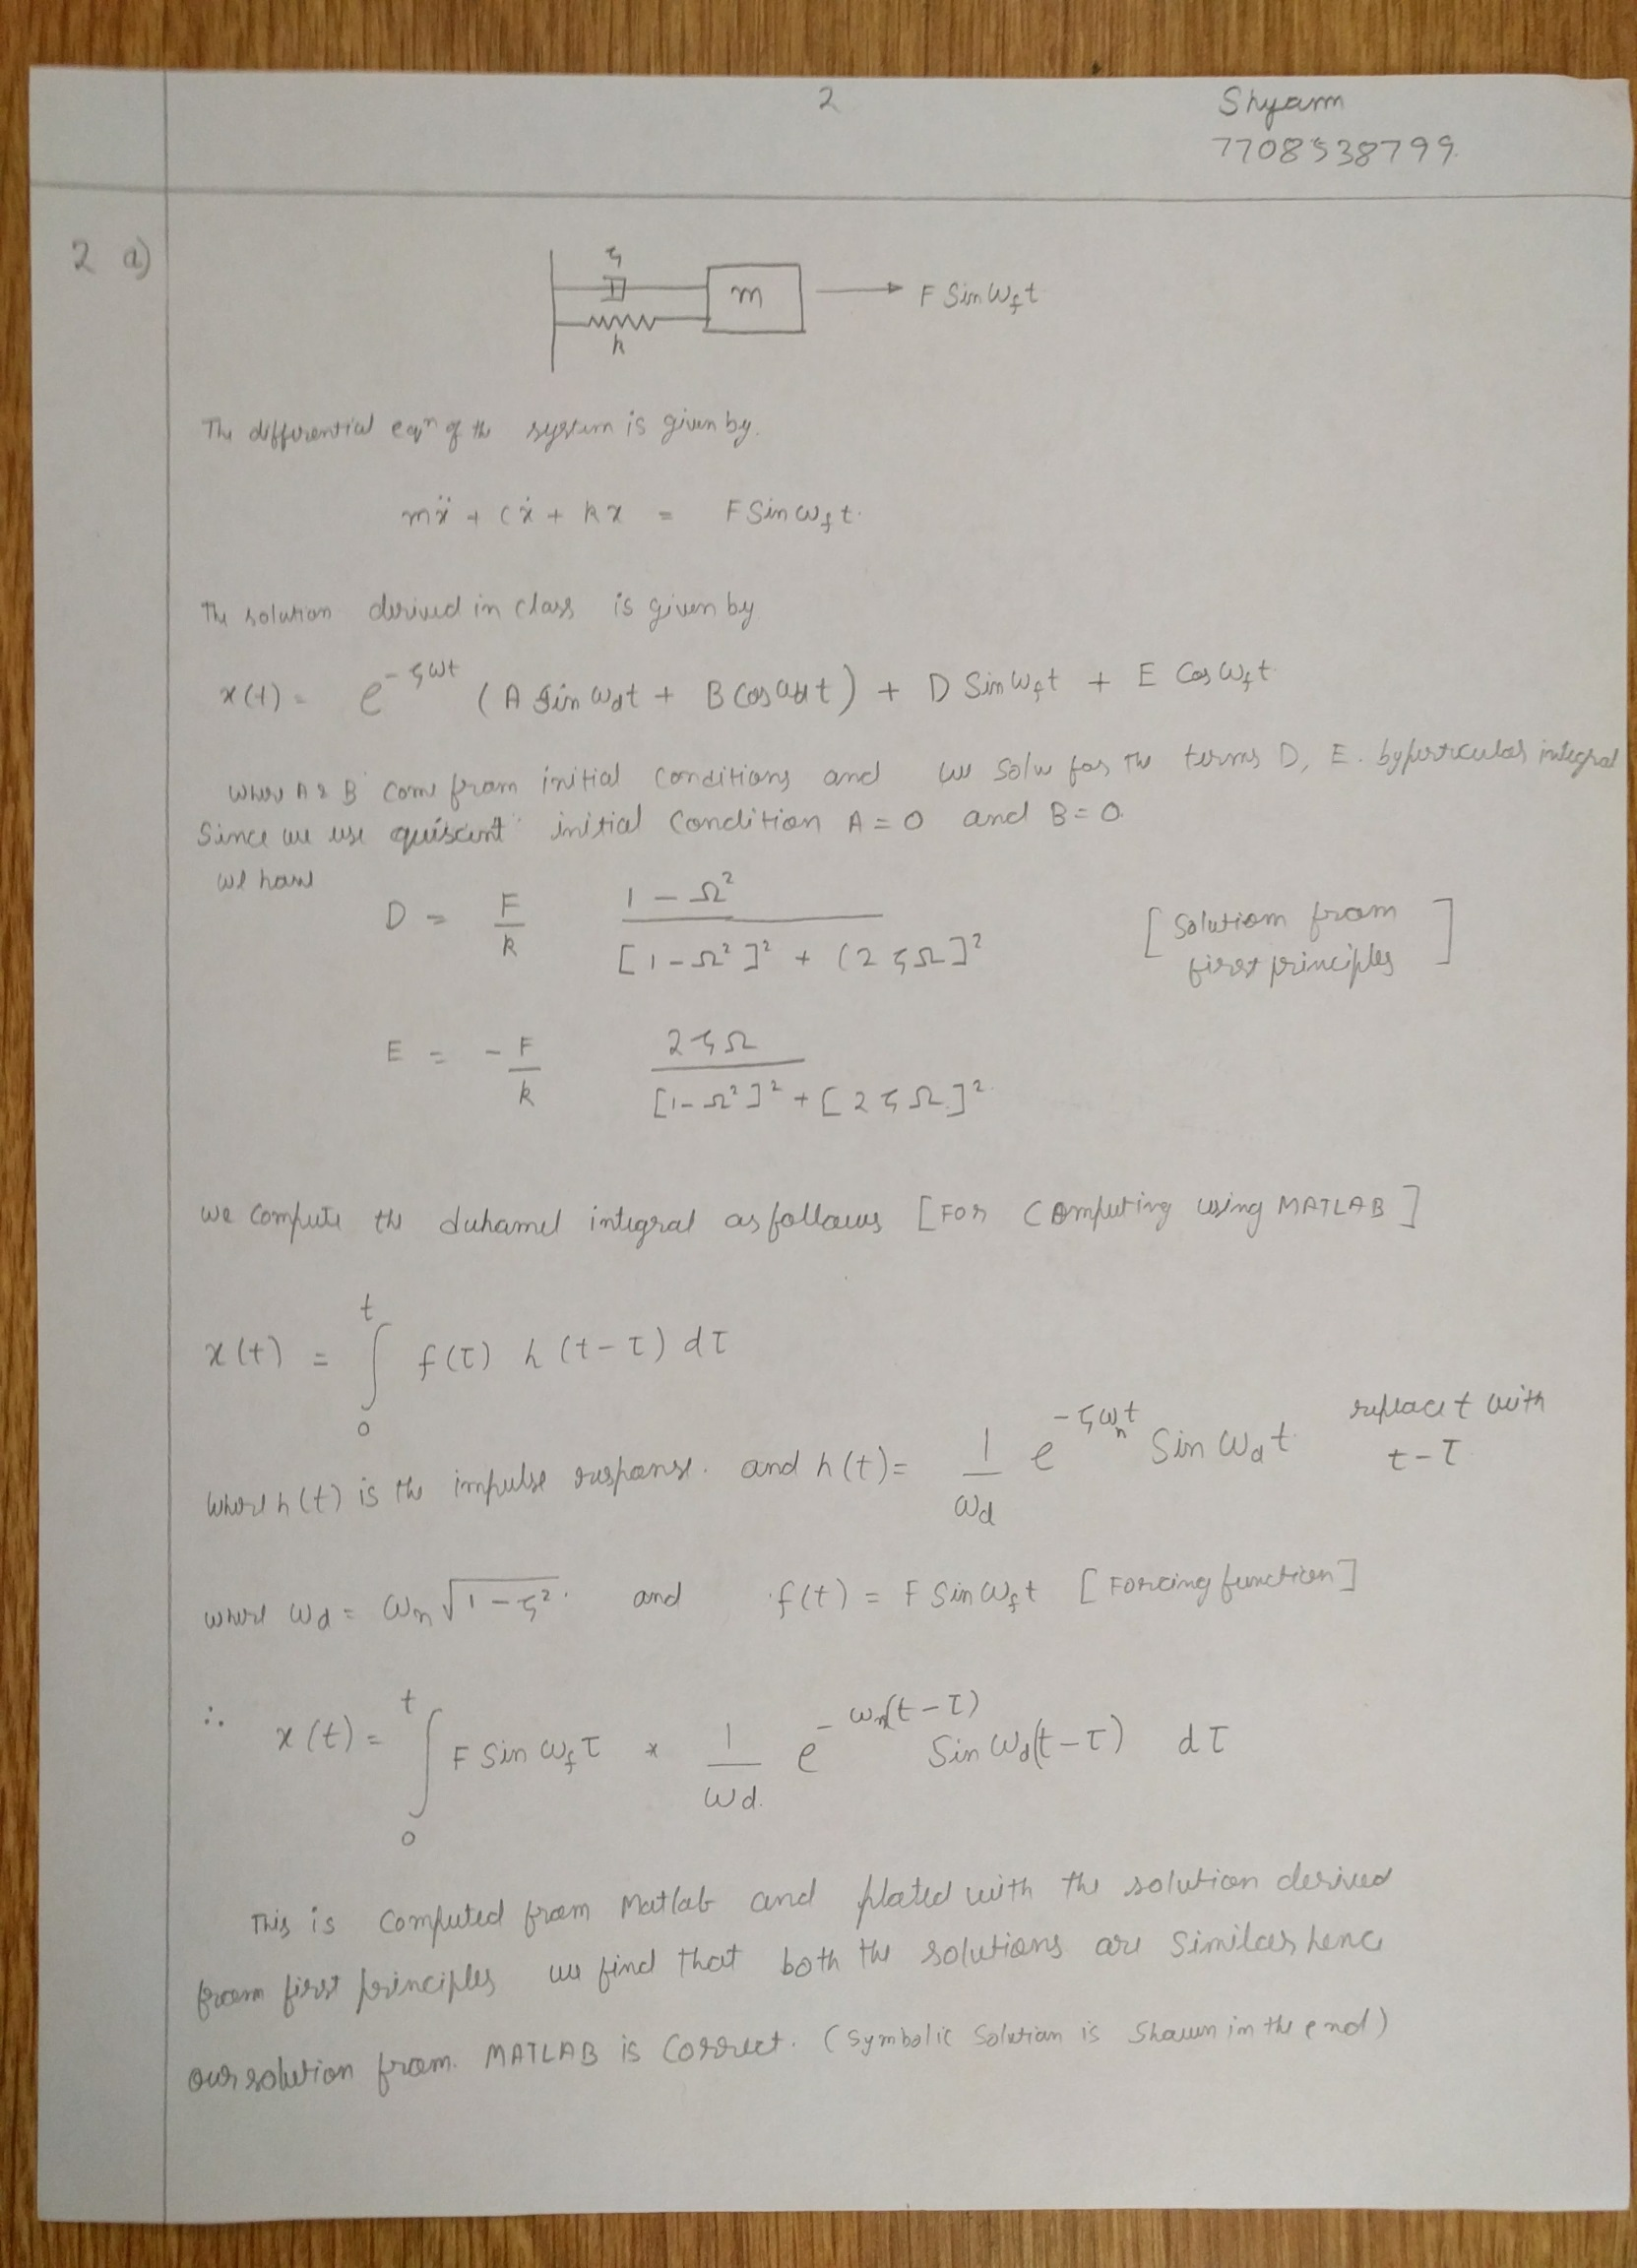 2
Shyam
7708538799
2 a)
ζ
m
F Sin ω_f t
k
The differential eqⁿ of the system is given by.
mẍ + Cẋ + kx = F Sin ω_f t.
The solution derived in class is given by
x(t) = e^{-ζωt} (A Sin ω_d t + B Cos ω_d t) + D Sin ω_f t + E Cos ω_f t
where A & B come from initial conditions and we solve for the terms D, E. by perticular integral
Since we use quiscent initial Condition A = 0 and B = 0.
we have
D = F/k (1 - Ω²)/([1 - Ω²]² + (2ζΩ]²)
[Solution from first principles]
E = - F/k (2ζΩ)/([1 - Ω²]² + [2ζΩ]²)
we compute the duhamel integral as follows [For Computing using MATLAB]
x(t) = ∫₀ᵗ f(τ) h(t-τ) dτ
where h(t) is the impulse response. and h(t) = 1/ω_d e^{-ζω_n t} Sin ω_d t replace t with t-τ
where ω_d = ω_n √(1-ζ²). and f(t) = F Sin ω_f t [Forcing function]
∴ x(t) = ∫₀ᵗ F Sin ω_f τ * 1/ω_d. e^{-ω_n(t-τ)} Sin ω_d(t-τ) dτ
This is Computed from Matlab and ploted with the solution derived
from first principles we find that both the solutions are Similar hence
our solution from. MATLAB is Correct. (Symbolic Solution is Shown in the end)